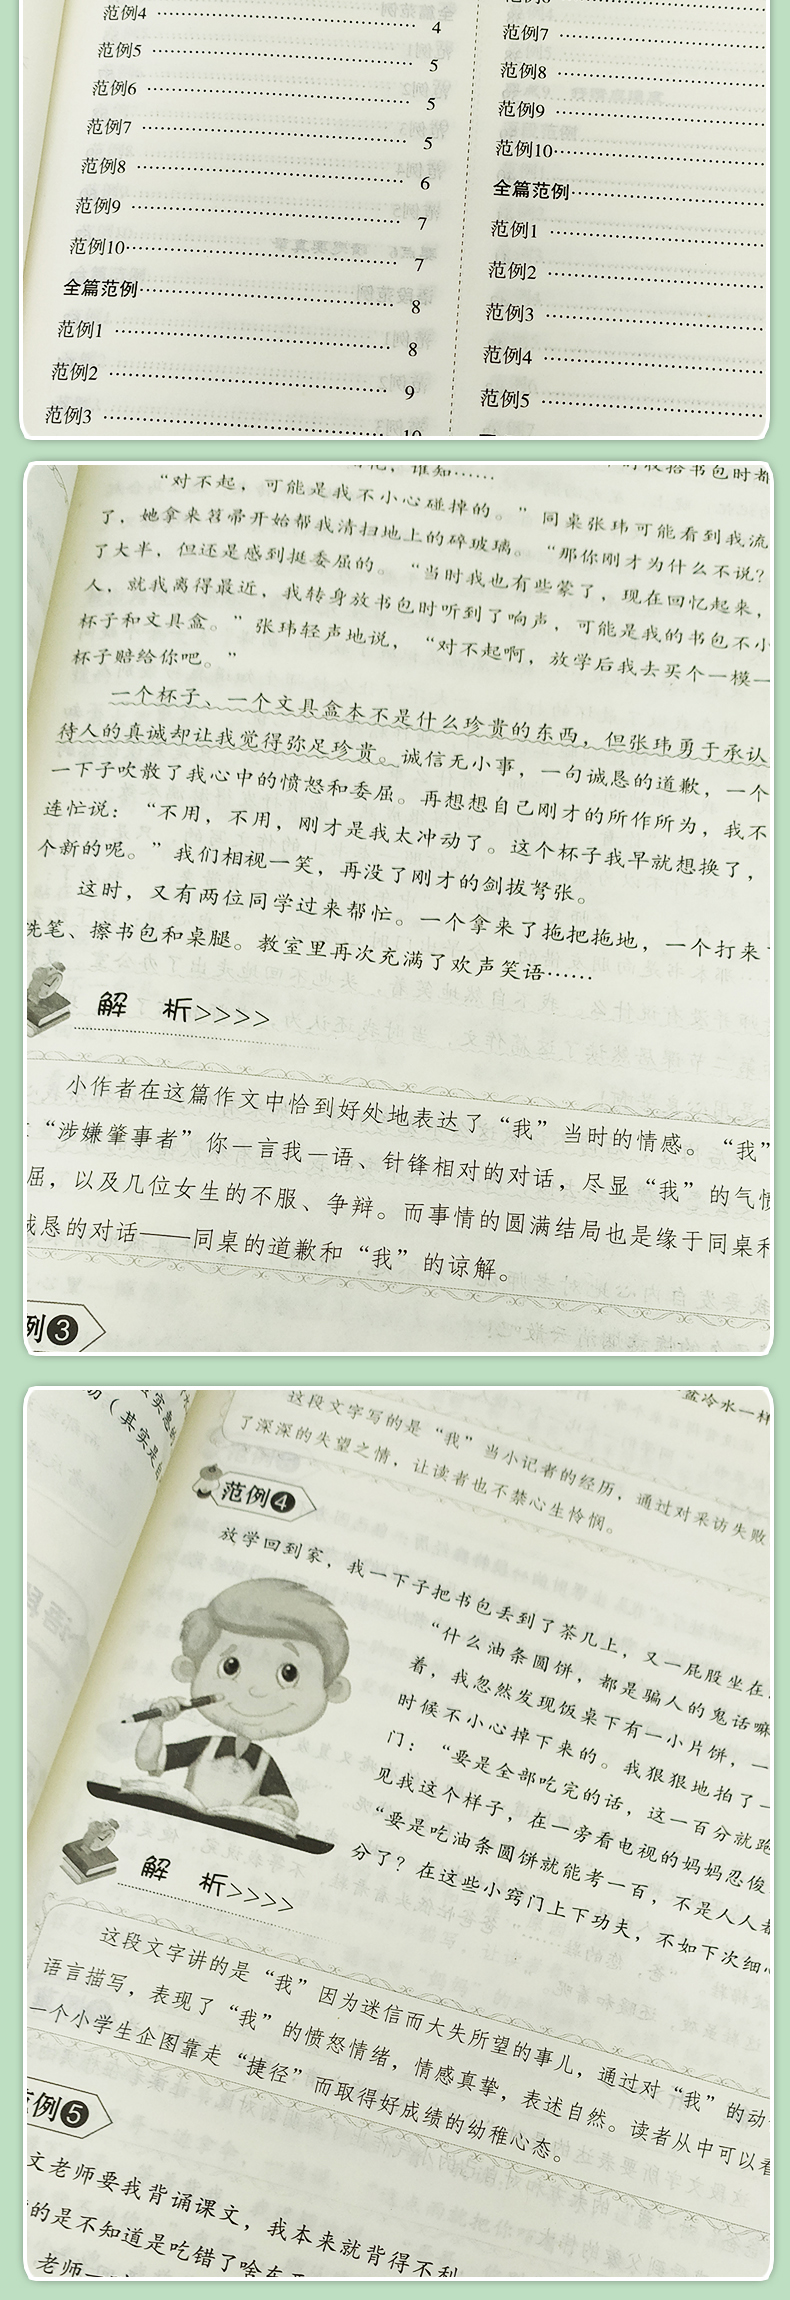 范例4 4
范例5 5
范例6 5
范例7 5
范例8 6
范例9 7
范例10 7
全篇范例 8
范例1 8
范例2 9
范例3
范例7
范例8
范例9
范例10
全篇范例
范例1
范例2
范例3
范例4
范例5
，谁知……
收拾书包时都
“对不起，可能是我不小心碰掉的。”同桌张玮可能看到我流
了，她拿来笤帚开始帮我清扫地上的碎玻璃。“那你刚才为什么不说？
了大半，但还是感到挺委屈的。“当时我也有些蒙了，现在回忆起来，
人，就我离得最近，我转身放书包时听到了响声，可能是我的书包不小
杯子和文具盒。”张玮轻声地说，“对不起啊，放学后我去买个一模一
杯子赔给你吧。”
一个杯子、一个文具盒本不是什么珍贵的东西，但张玮勇于承认
待人的真诚却让我觉得弥足珍贵。诚信无小事，一句诚恳的道歉，一个
一下子吹散了我心中的愤怒和委屈。再想想自己刚才的所作所为，我不
连忙说：“不用，不用，刚才是我太冲动了。这个杯子我早就想换了，
个新的呢。”我们相视一笑，再没了刚才的剑拔弩张。
这时，又有两位同学过来帮忙。一个拿来了拖把拖地，一个打来
洗笔、擦书包和桌腿。教室里再次充满了欢声笑语……
解 析>>>>
小作者在这篇作文中恰到好处地表达了“我”当时的情感。“我”
“涉嫌肇事者”你一言我一语、针锋相对的对话，尽显“我”的气愤
屈，以及几位女生的不服、争辩。而事情的圆满结局也是缘于同桌和
诚恳的对话——同桌的道歉和“我”的谅解。
例3
（其实是
盆冷水一样
这段文字写的是“我”当小记者的经历，通过对采访失败
了深深的失望之情，让读者也不禁心生怜悯。
范例4
放学回到家，我一下子把书包丢到了茶几上，又一屁股坐在
“什么油条圆饼，都是骗人的鬼话嘛
着，我忽然发现饭桌下有一小片饼，一
时候不小心掉下来的。我狠狠地拍了一
门：“要是全部吃完的话，这一百分就跑
见我这个样子，在一旁看电视的妈妈忍俊
“要是吃油条圆饼就能考一百，不是人人都
分了？在这些小窍门上下功夫，不如下次细心
解 析>>>>
这段文字讲的是“我”因为迷信而大失所望的事儿，通过对“我”的动
语言描写，表现了“我”的愤怒情绪，情感真挚，表述自然。读者从中可以看
一个小学生企图靠走“捷径”而取得好成绩的幼稚心态。
范例5
文老师要我背诵课文，我本来就背得不利
的是不知道是吃错了啥东西
老师一